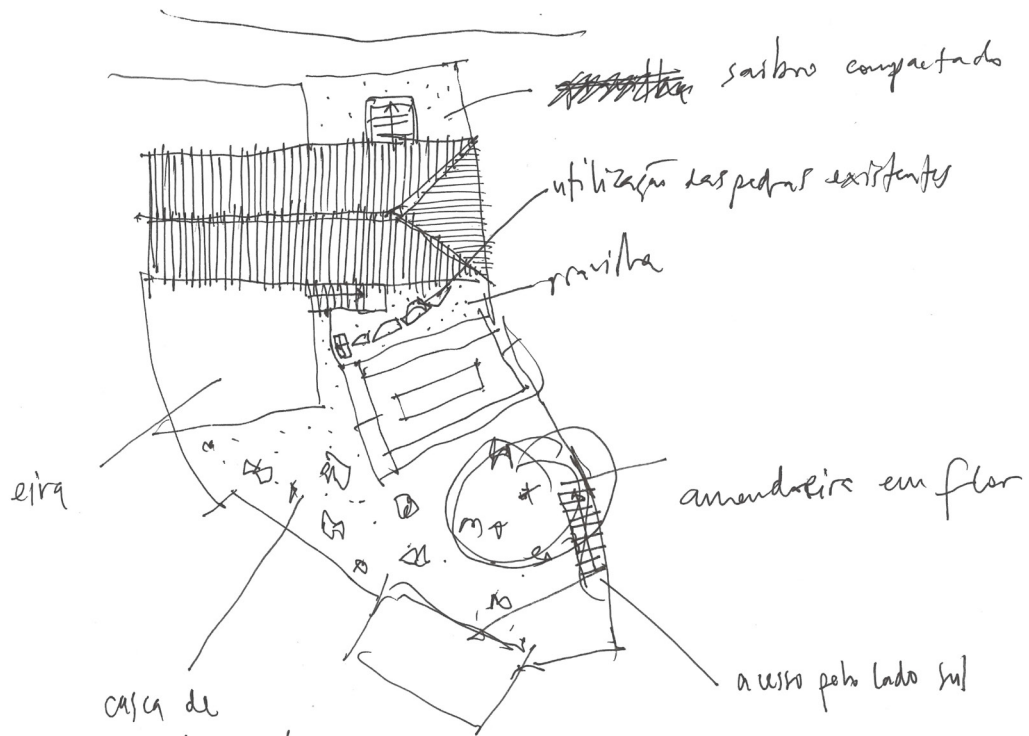 saibro compactado
utilização das pedras existentes
gravilha
eira
amendoeira em flor
acesso pelo lado sul
casca de